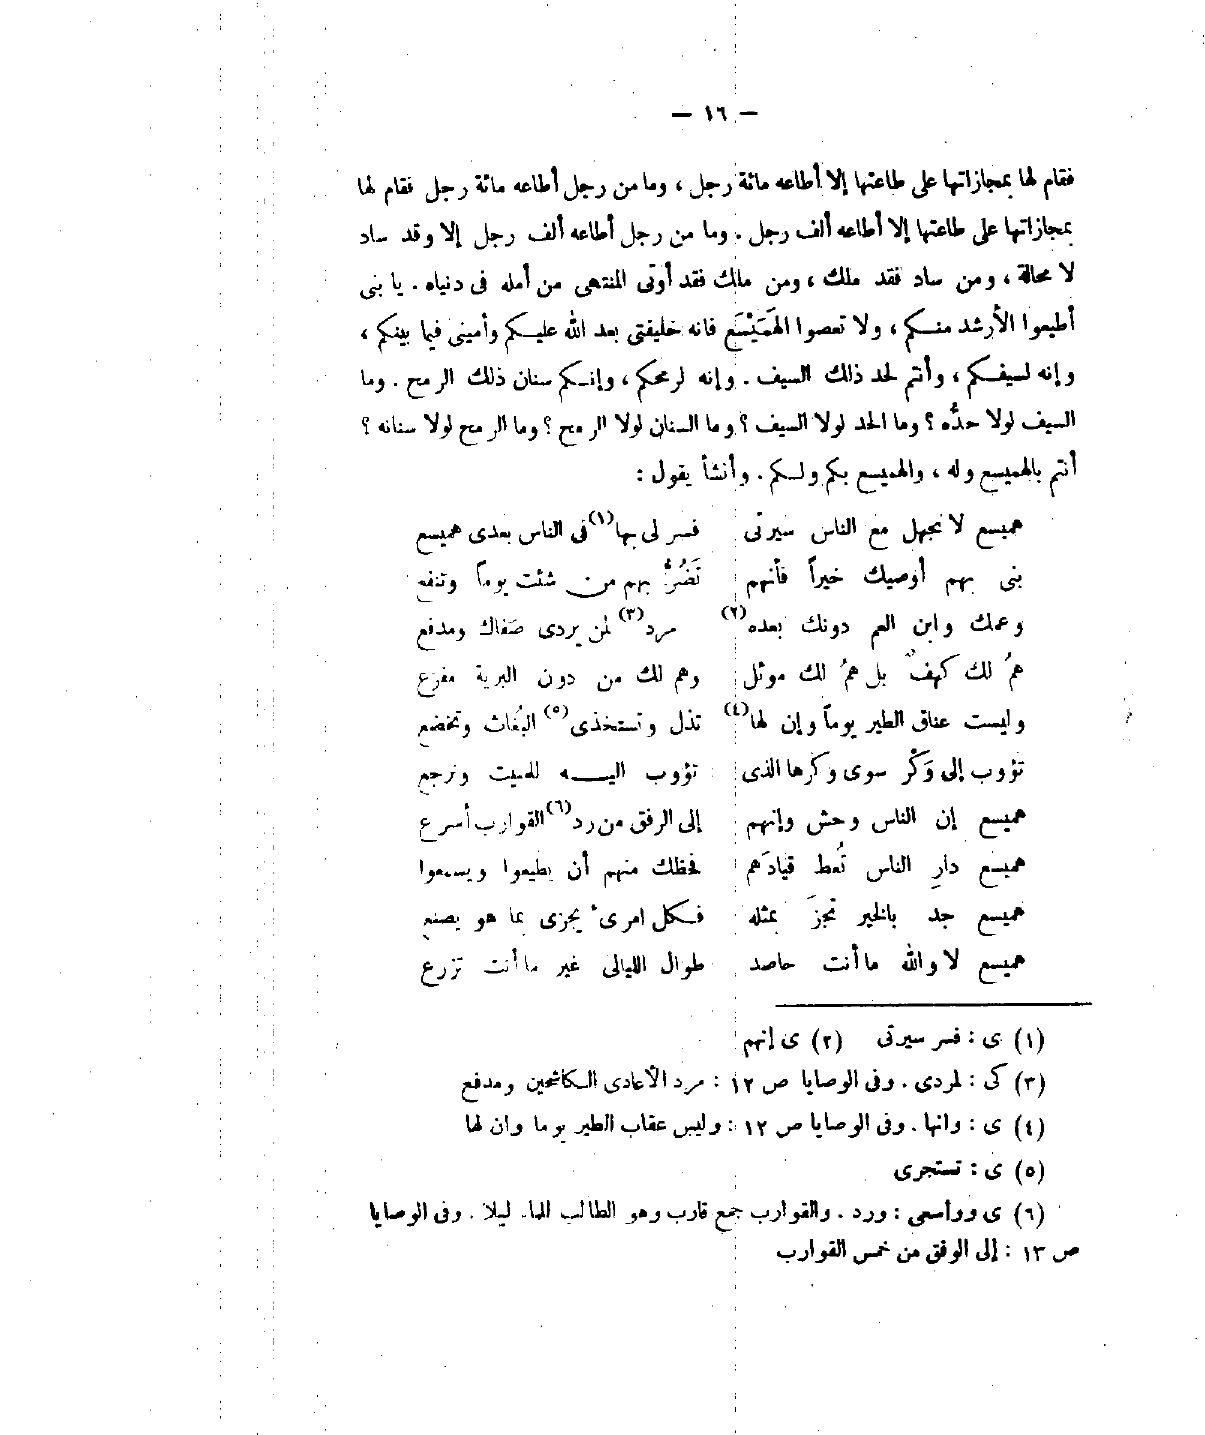 — ١٦ —
فقام لها بمجازاتها على طاعتها إلا أطاعه مائة رجل ، وما من رجل أطاعه مائة رجل فقام لها
بمجازاتها على طاعتها إلا أطاعه ألف رجل . وما من رجل أطاعه ألف رجل إلا وقد ساد
لا محالة ، ومن ساد فقد ملك ، ومن ملك فقد أوتى المنتهى من أمله فى دنياه . يا بنى
أطيعوا الأرشد منكم ، ولا تعصوا الهَمَيْسَع فانه خليفتى بعد الله عليكم وأمينى فيما بينكم ،
وإنه لسيفكم ، وأنتم لحد ذلك السيف . وإنه لرمحكم ، وإنكم سنان ذلك الرمح . وما
السيف لولا حدُّه ؟ وما الحد لولا السيف ؟ وما السنان لولا الرمح ؟ وما الرمح لولا سنانه ؟
أنتم بالهميسع وله ، والهميسع بكم ولكم . وأنشأ يقول :
هميسع لا تجهل مع الناس سيرتى فسر لى بها(١) فى الناس بعدى هميسع
بنى بهم أوصيك خيراً فأنهم تَضُرُّ بهم من شئت يوماً وتنفع
وعمك وابن العم دونك بعده(٢) مرد(٣) لمن يردى صَفاك ومدفع
همُ لك كهفٌ بل همُ لك موئل وهم لك من دون البرية مفزع
وليست عناق الطير يوماً وإن لها(٤) تذل وتستخذى(٥) البُغاث وتخضع
تؤوب إلى وَكْر سوى وكرها الذى تؤوب اليه للمبيت وترجع
هميسع إن الناس وحش وإنهم إلى الرفق من رد(٦) القوارب أسرع
هميسع دارِ الناس تُعط قيادَهم فحظك منهم أن يطيعوا ويسمعوا
هميسع جد بالخير تُجزَ بمثله فكل امرىء يجزى بما هو يصنع
هميسع لا والله ما أنت حاصد طوال الليالى غير ما أنت تزرع
(١) ى : فسر سيرتى (٢) ى إنهم
(٣) كى : لمردى . وفى الوصايا ص ١٢ : مرد الأعادى الكاشحين ومدفع
(٤) ى : وانها . وفى الوصايا ص ١٢ : وليس عقاب الطير يوما وان لها
(٥) ى : تستجرى
(٦) ى ورأسعى : ورد . والقوارب جمع قارب وهو الطالب الماء ليلا . وفى الوصايا
ص ١٣ : إلى الوفق من خمس القوارب